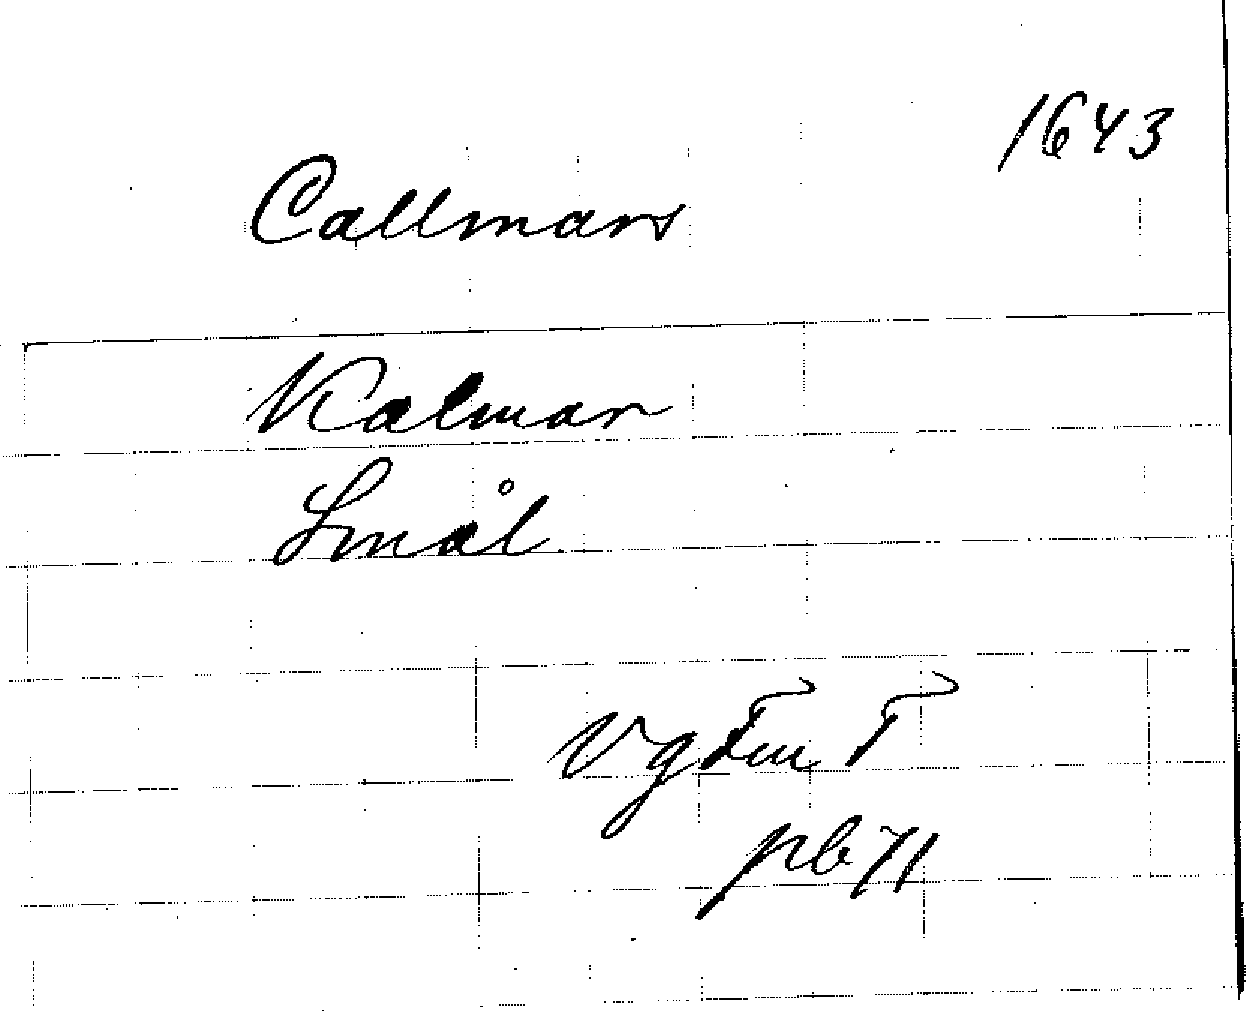 1643
Callmars
Kalmar
Smål
VgFmT
pb 71